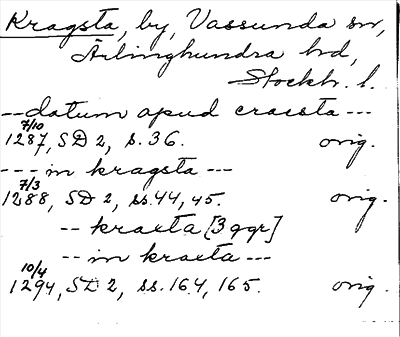 Kragsta, by, Vassunda sn,
Ärlinghundra hd,
Stockh. l.
-- datum apud craesta ---
7/10
1287, SD 2, s. 36. orig.
--- in kragsta ---
7/3
1288, SD 2, ss. 44, 45. orig.
-- kraeta [3 ggr]
-- in kraeta ---
10/4
1294, SD 2, ss. 164, 165. orig.